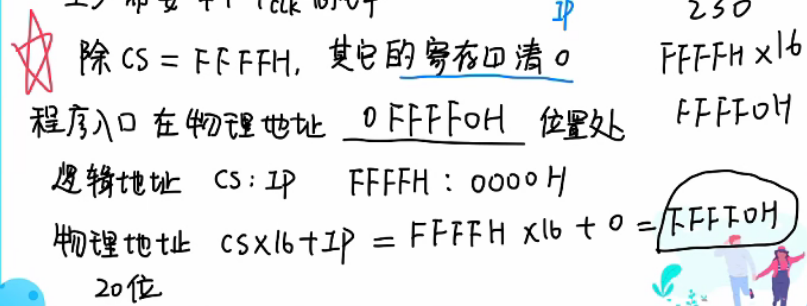 TCLK
IP
230
除 CS = FFFFH, 其它的寄存口清 0
FFFFH×16
程序入口 在物理地址 0FFFF0H 位置处
FFFF0H
逻辑地址 CS:IP FFFFH:0000H
物理地址 CS×16+IP = FFFFH ×16 + 0 = FFFF0H
20位